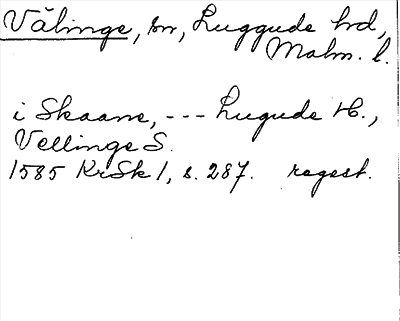 Välinge, sn, Luggude hrd,
Malm. l.
i Skaane, --- Lugude H.,
Vellinge S.
1585 KrSk 1, s. 287. regest.